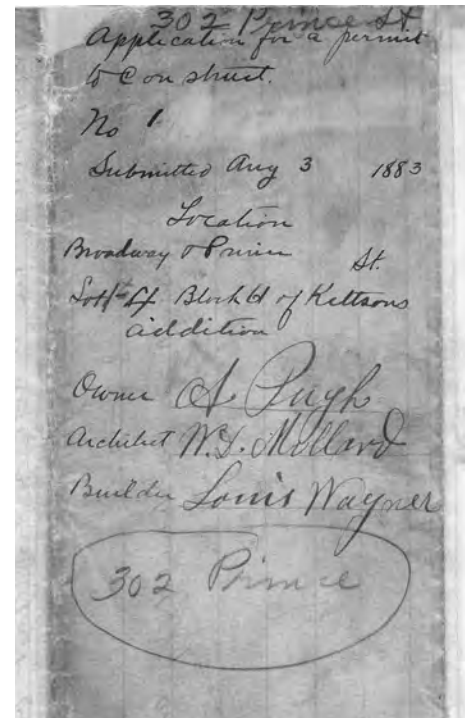 302 Prince St
Application for a permit
to Construct.
No 1
Submitted Aug 3 1883
Location
Broadway & Prince St.
Lot 1-4 Block 61 of Kittsons
addition
Owner A Pugh
Architect W.D. Millard
Builder Louis Wagner
302 Prince